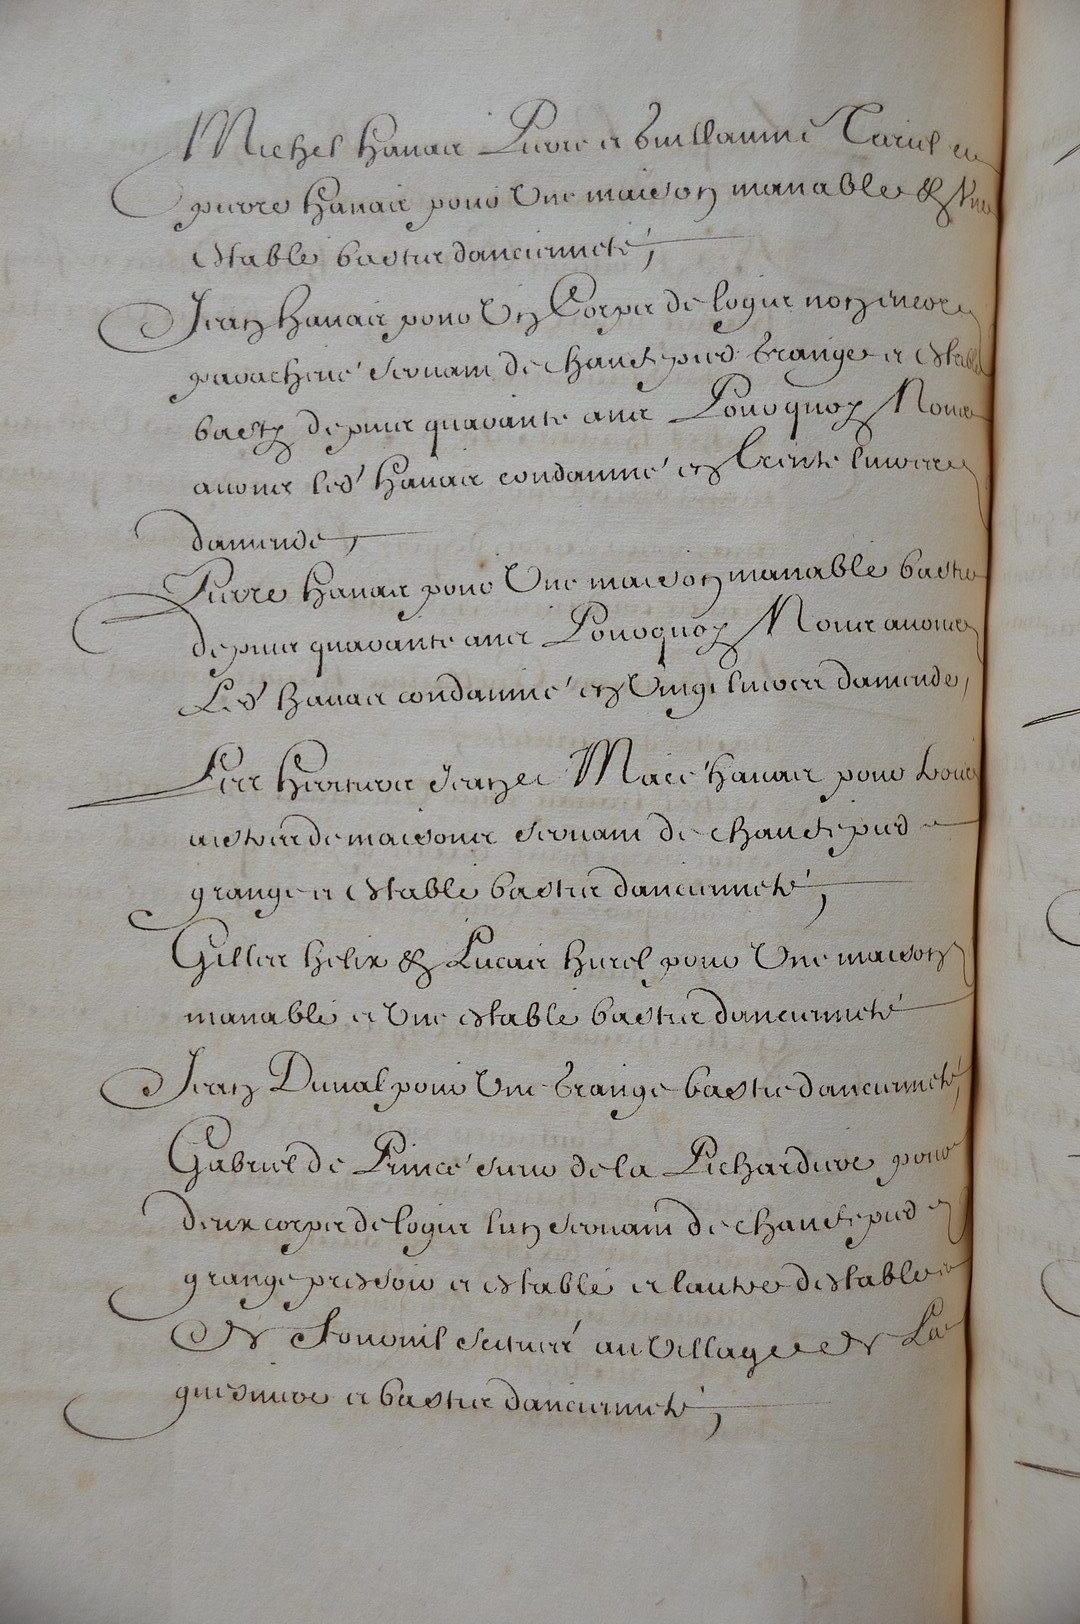 Michel hanair Pierre et Guillaume Cariel et
pierre hanair pour Une maison manable & Une
Estable bastie dancienneté,
Jean hanair pour Un Corps de logis non encore
paracheué seruant de chaufepied Grange et estable
basty depuis quarante ans Pourquoy Nous
auons led' hanair condamné en trente liures
damende,
Pierre hanair pour Une maison manable bastie
depuis quarante ans Pourquoy Nous auons
Led' hanair condamné en Vingt liures damende,
Les heritiers Jean et Macé hanair pour trois
astres de maisons seruant de chaufepied
grange et estable basties dancienneté,
Gilles helix & Lucas hurel pour Une maison
manable et Une estable basties dancienneté
Jean Duual pour Une Grange bastie danciennete,
Gabriel de Prince sieur de la Pichardiere pour
deux corps de logis lun seruant de chaufepied
grange pressoir et estable et lautre destable
Et Fournil scitués au Village de La
quesniere et basties danciennete,